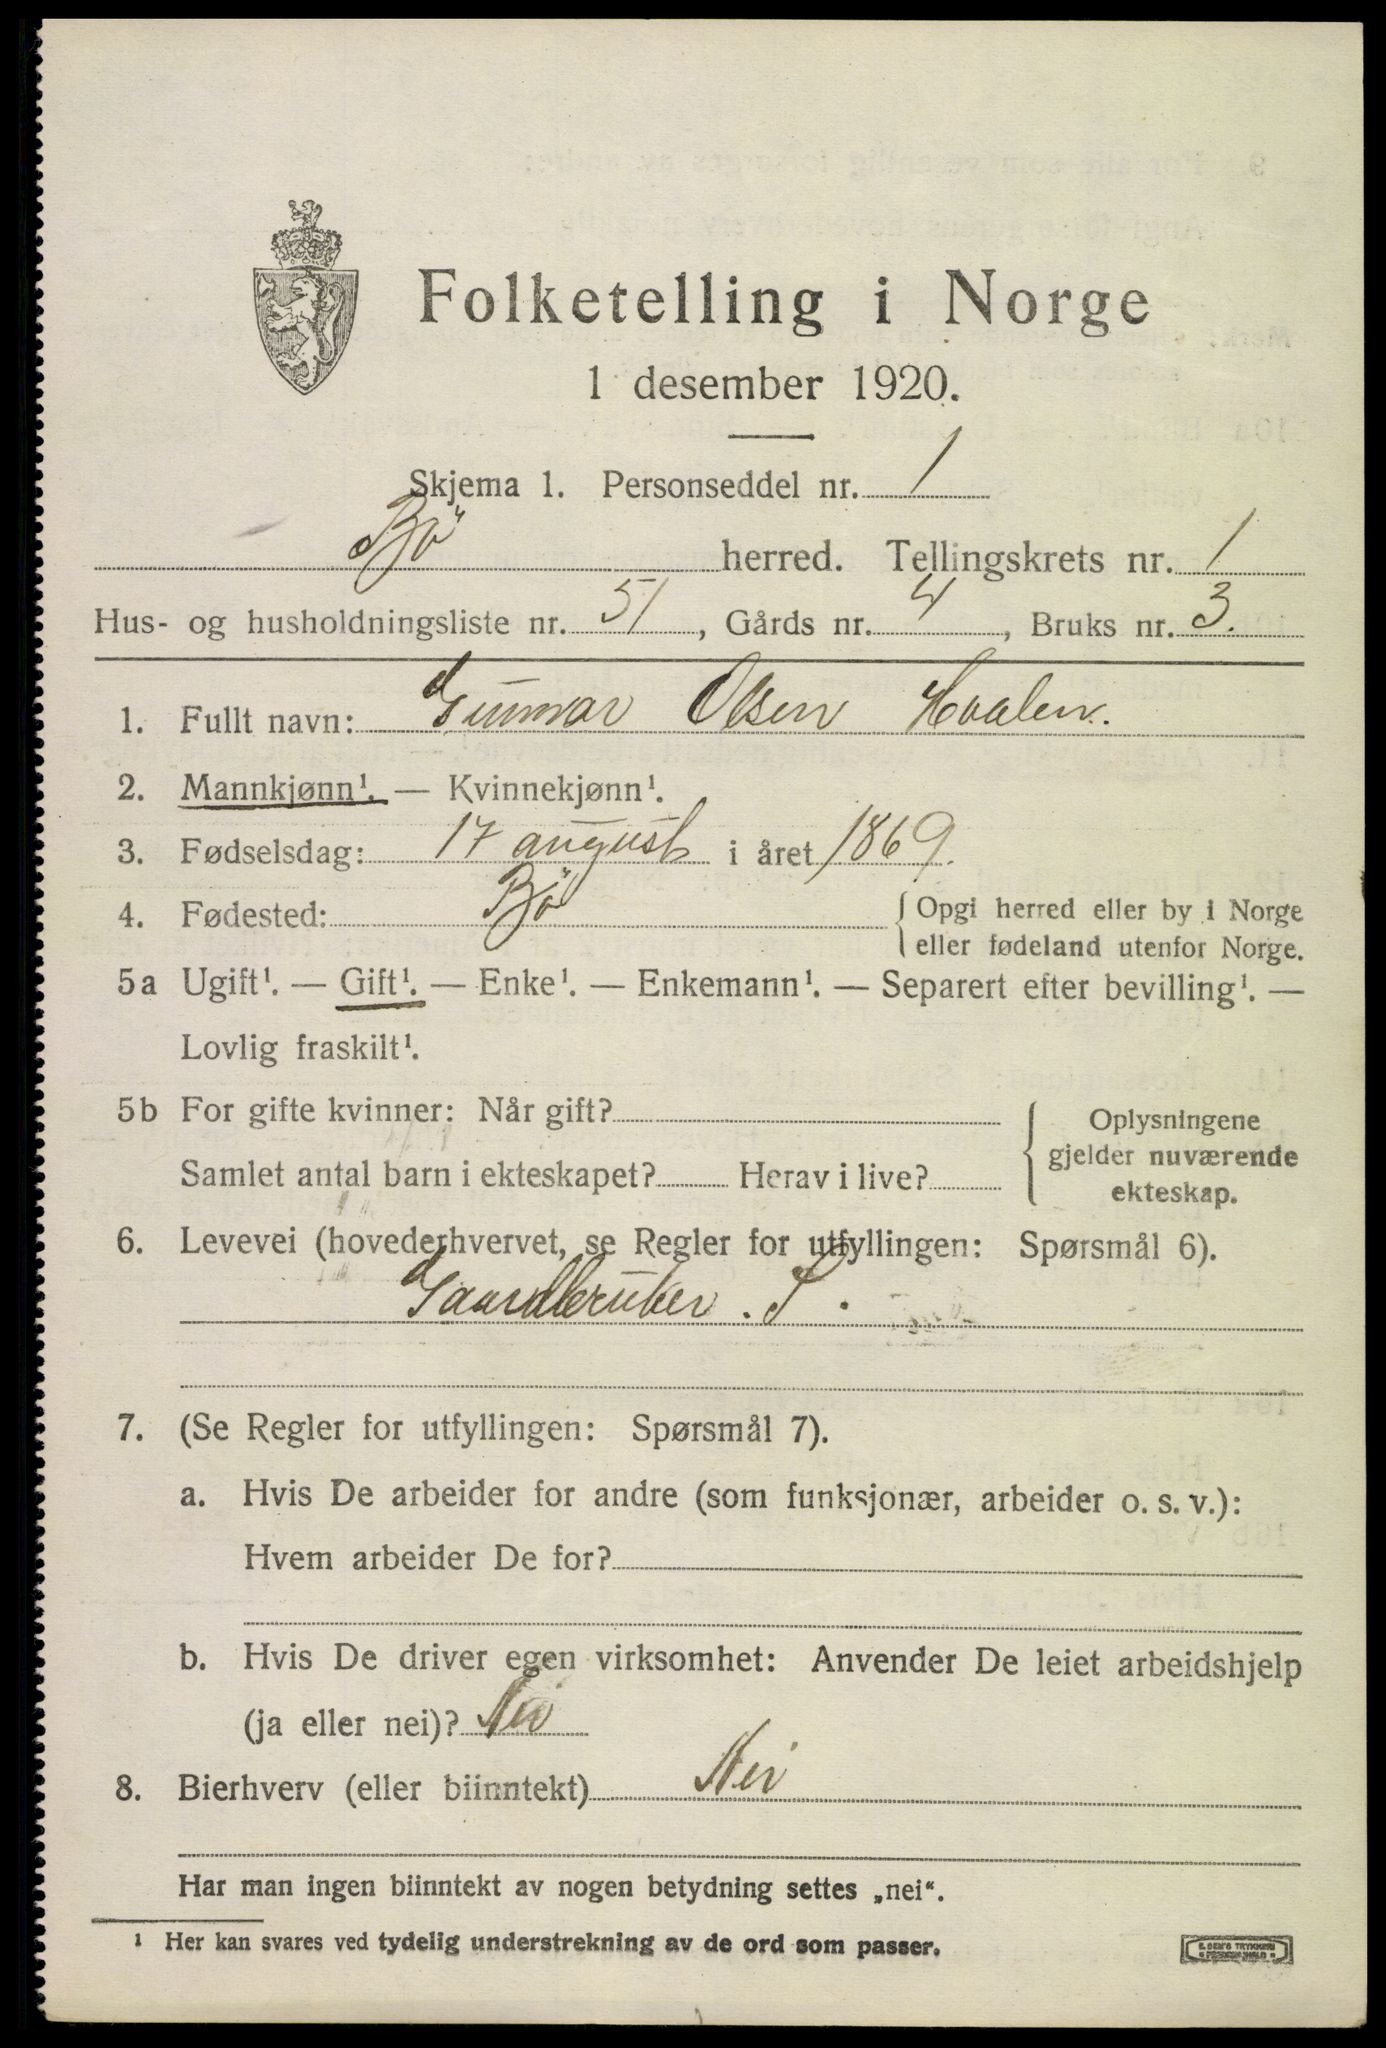 Folketelling i Norge
1 desember 1920.
Skjema 1. Personseddel nr. 1
Bö herred. Tellingskrets nr. 1
Hus- og husholdningsliste nr. 51, Gårds nr. 4, Bruks nr. 3.
1. Fullt navn: Gunnar Olsen Hvalen.
2. Mannkjønn¹. — Kvinnekjønn¹.
3. Fødselsdag: 17 august i året 1869.
4. Fødested: Bö { Opgi herred eller by i Norge
eller fødeland utenfor Norge.
5a Ugift¹. — Gift¹. — Enke¹. — Enkemann¹. — Separert efter bevilling¹. —
Lovlig fraskilt¹.
5b For gifte kvinner: Når gift?
Samlet antal barn i ekteskapet? Herav i live?
{ Oplysningene
gjelder nuværende
ekteskap.
6. Levevei (hovederhvervet, se Regler for utfyllingen: Spørsmål 6).
Gaardbruker. S.
7. (Se Regler for utfyllingen: Spørsmål 7).
a. Hvis De arbeider for andre (som funksjonær, arbeider o. s. v.):
Hvem arbeider De for?
b. Hvis De driver egen virksomhet: Anvender De leiet arbeidshjelp
(ja eller nei)? Nei
8. Bierhverv (eller biinntekt) Nei
Har man ingen biinntekt av nogen betydning settes „nei“.
¹ Her kan svares ved tydelig understrekning av de ord som passer.